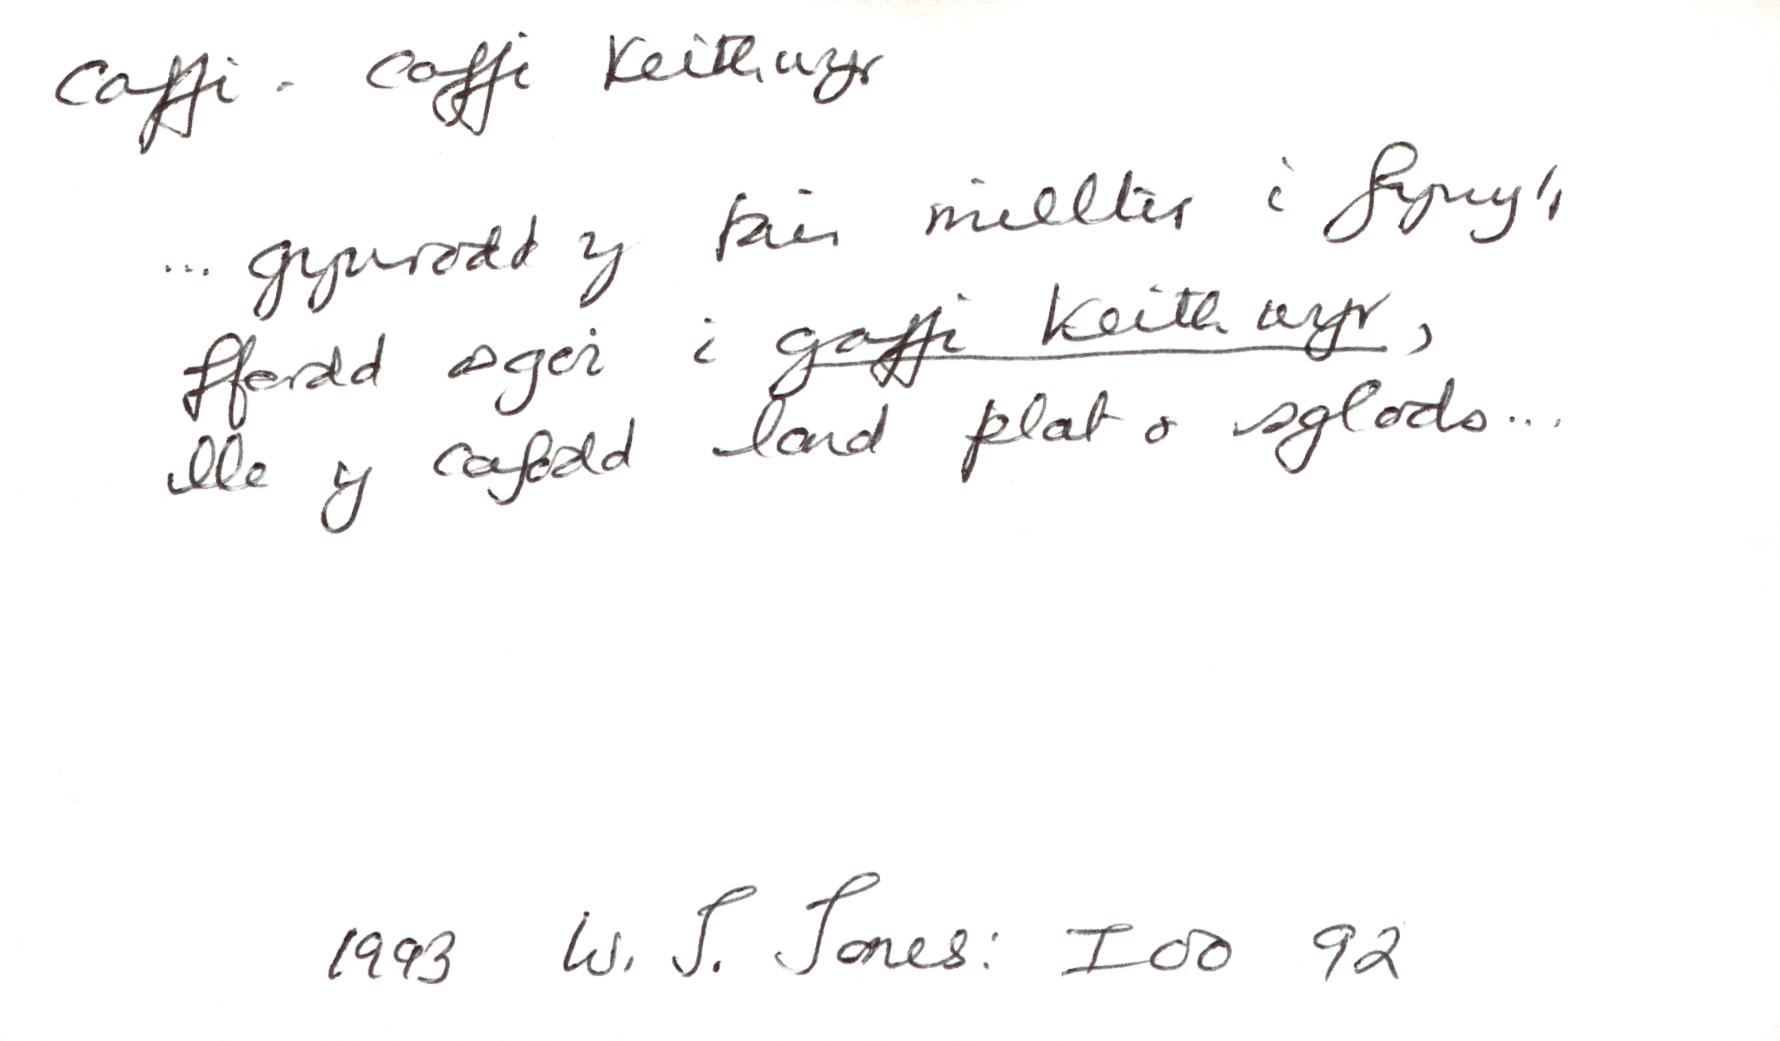 caffi - caffi Keith wyr
... gyrrodd y tair milltir i fyny'r
ffordd agor i gaffi Keith wyr,
lle y cafodd lond plat o sglods...
1993 W. S. Jones: IOO 92